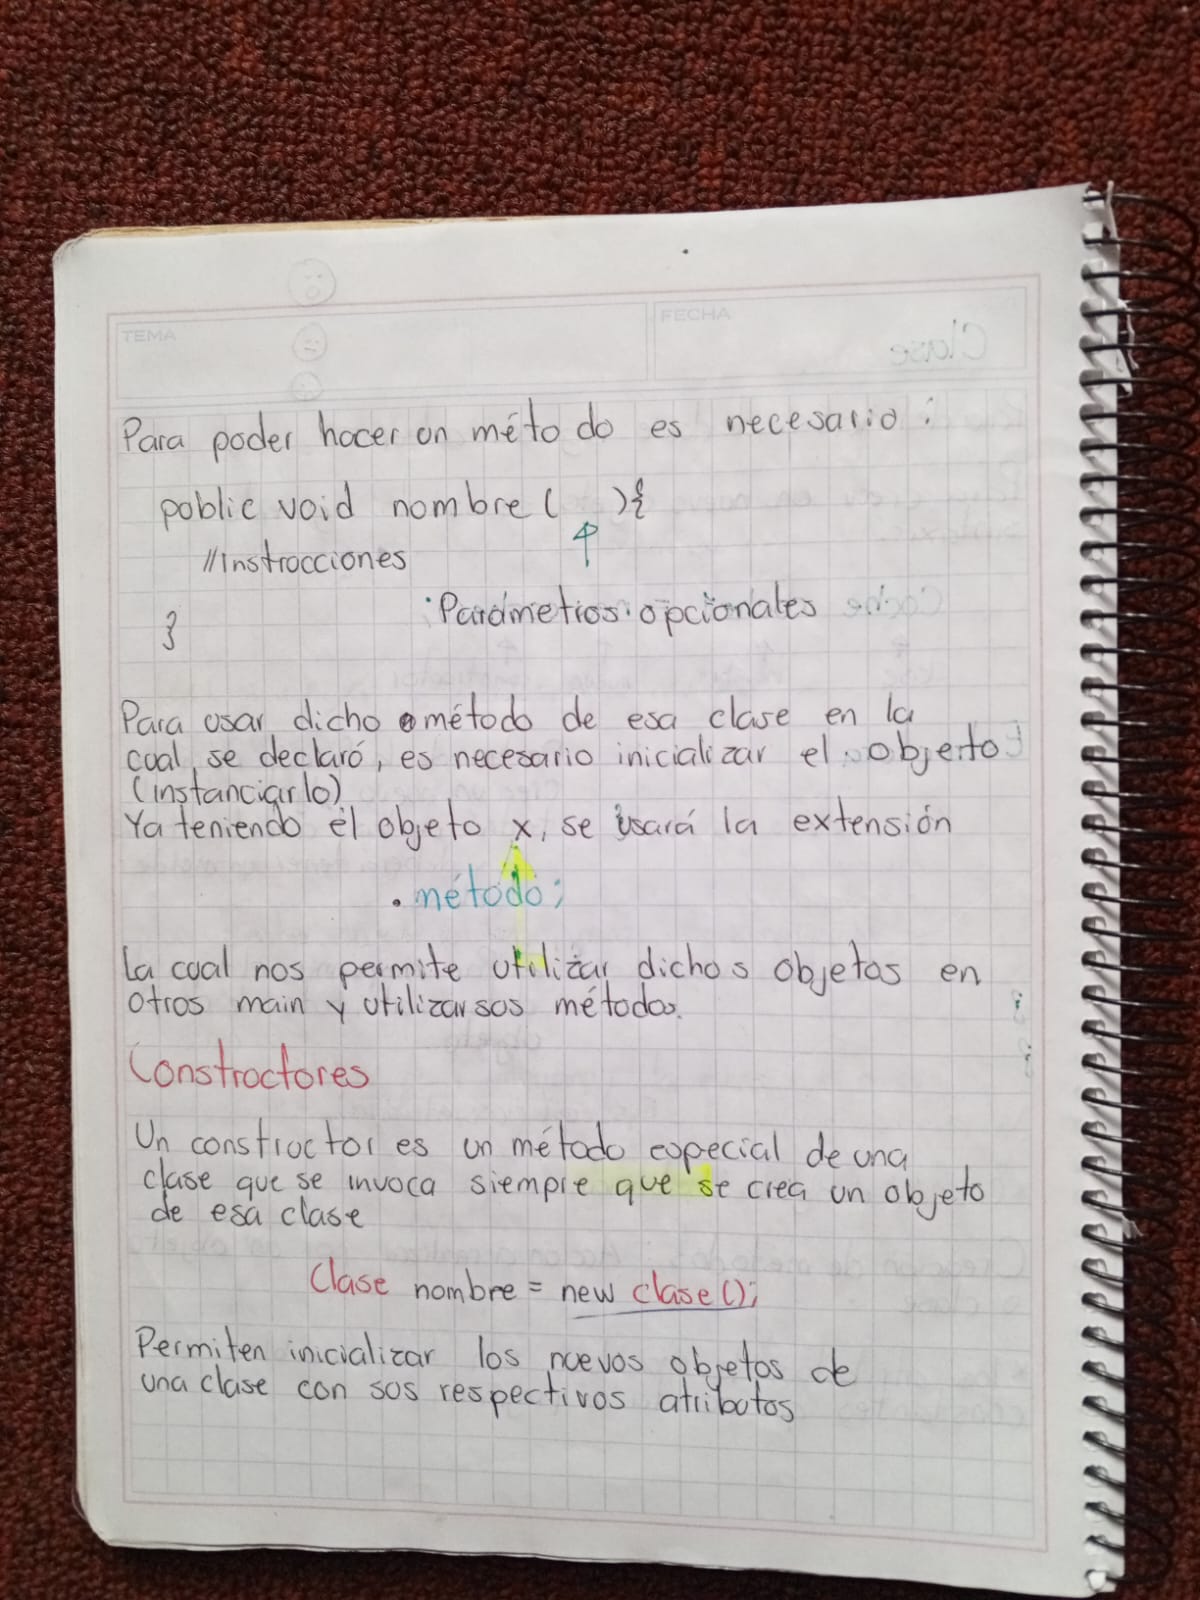 TEMA
FECHA
Clase
Para poder hacer un método es necesario:
public void nombre ( ){
//Instrucciones
Parámetros opcionales
}
Para usar dicho método de esa clase en la
cual se declaró, es necesario inicializar el objeto
(instanciarlo)
Ya teniendo el objeto x, se usará la extensión
. método;
La cual nos permite utilizar dichos objetos en
otros main y utilizar sus métodos.
Constructores
Un constructor es un método especial de una
clase que se invoca siempre que se crea un objeto
de esa clase
Clase nombre = new clase();
Permiten inicializar los nuevos objetos de
una clase con sus respectivos atributos